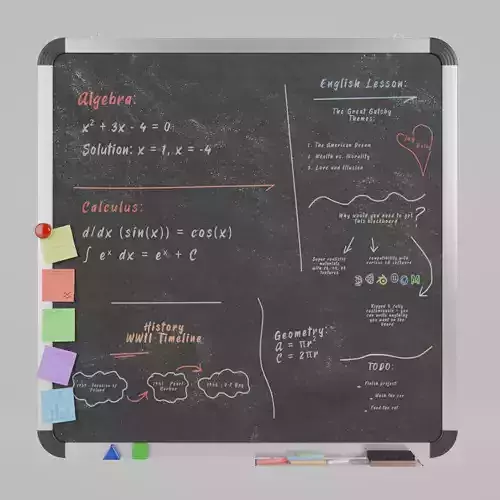 Algebra:
x² + 3x - 4 = 0
Solution: x = 1, x = -4
Calculus:
d/dx (sin(x)) = cos(x)
∫ eˣ dx = eˣ + C
History
WWII Timeline
1939 - Invasion of
Poland
1941 - Pearl
Harbor
1944 : D-Day
English Lesson:
The Great Gatsby
Themes:
1. The American Dream
2. Wealth vs. Morality
3. Love and Illusion
Why would you need to get
this blackboard ?
Super realistic
materials
with
compatibility with
various 3d software
Rigged & fully
customizable - you
can write anything
you want on the
board
Geometry:
A = πr²
C = 2πr
TODO:
- Finish project
- Wash the car
- Feed the cat